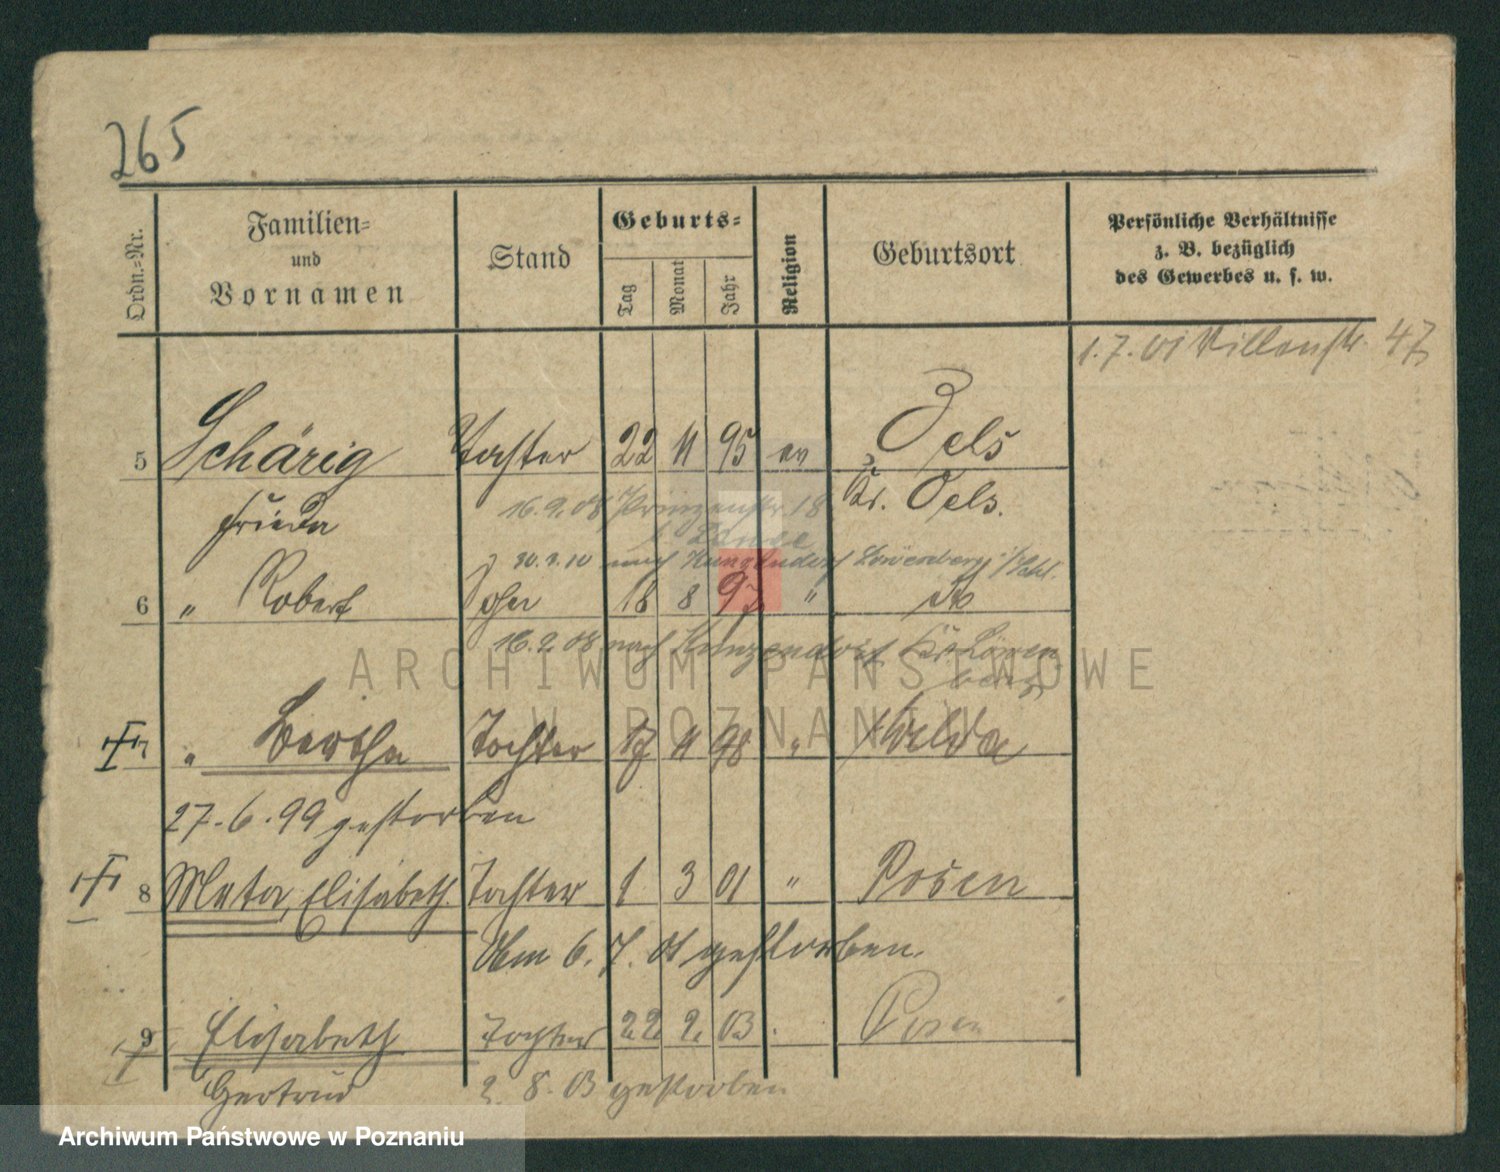 265
Ordn.-Nr. Familien- und Vornamen Stand Geburts- Tag Monat Jahr Religion Geburtsort Persönliche Verhältnisse z. B. bezüglich des Gewerbes u. s. w.
1.7.01 Villenstr. 47
5 Schärig Tochter 22 11 95 ev Oels
Frieda Kr. Oels.
16.9.08 Prinzenstr. 18
30.3.10 nach Kunzendorf Löwenberg i/Schl.
6 " Robert Sohn 18 8 97 " do
16.9.08 nach Kunzendorf Kr. Löwen
berg
ARCHIWUM PAŃSTWOWE
W POZNANIU
7 " Bertha Tochter 17 11 98 " Wilda
27.6.99 gestorben
8 Meta, Elisabeth. Tochter 1 3 01 " Posen
Am 6.7.01 gestorben.
9 Elisabeth Tochter 22 2. 03 Posen
Gertrud 2.8.03 gestorben
Archiwum Państwowe w Poznaniu